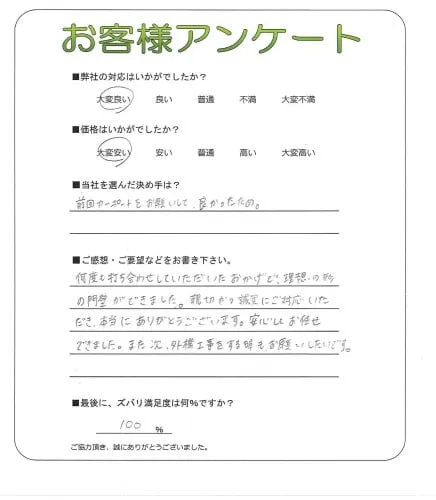 お客様アンケート
■弊社の対応はいかがでしたか?
大変良い 良い 普通 不満 大変不満
■価格はいかがでしたか?
大変安い 安い 普通 高い 大変高い
■当社を選んだ決め手は?
前回カーポートをお願いして、良かったため。
■ご感想・ご要望などをお書き下さい。
何度も打ち合わせしていただいたおかげで、理想の形
の門壁ができました。親切かつ誠実にご対応いた
だき、本当にありがとうございます。安心してお任せ
できました。また次、外構工事をする時もお願いしたいです。
■最後に、ズバリ満足度は何%ですか?
100 %
ご協力頂き、誠にありがとうございました。